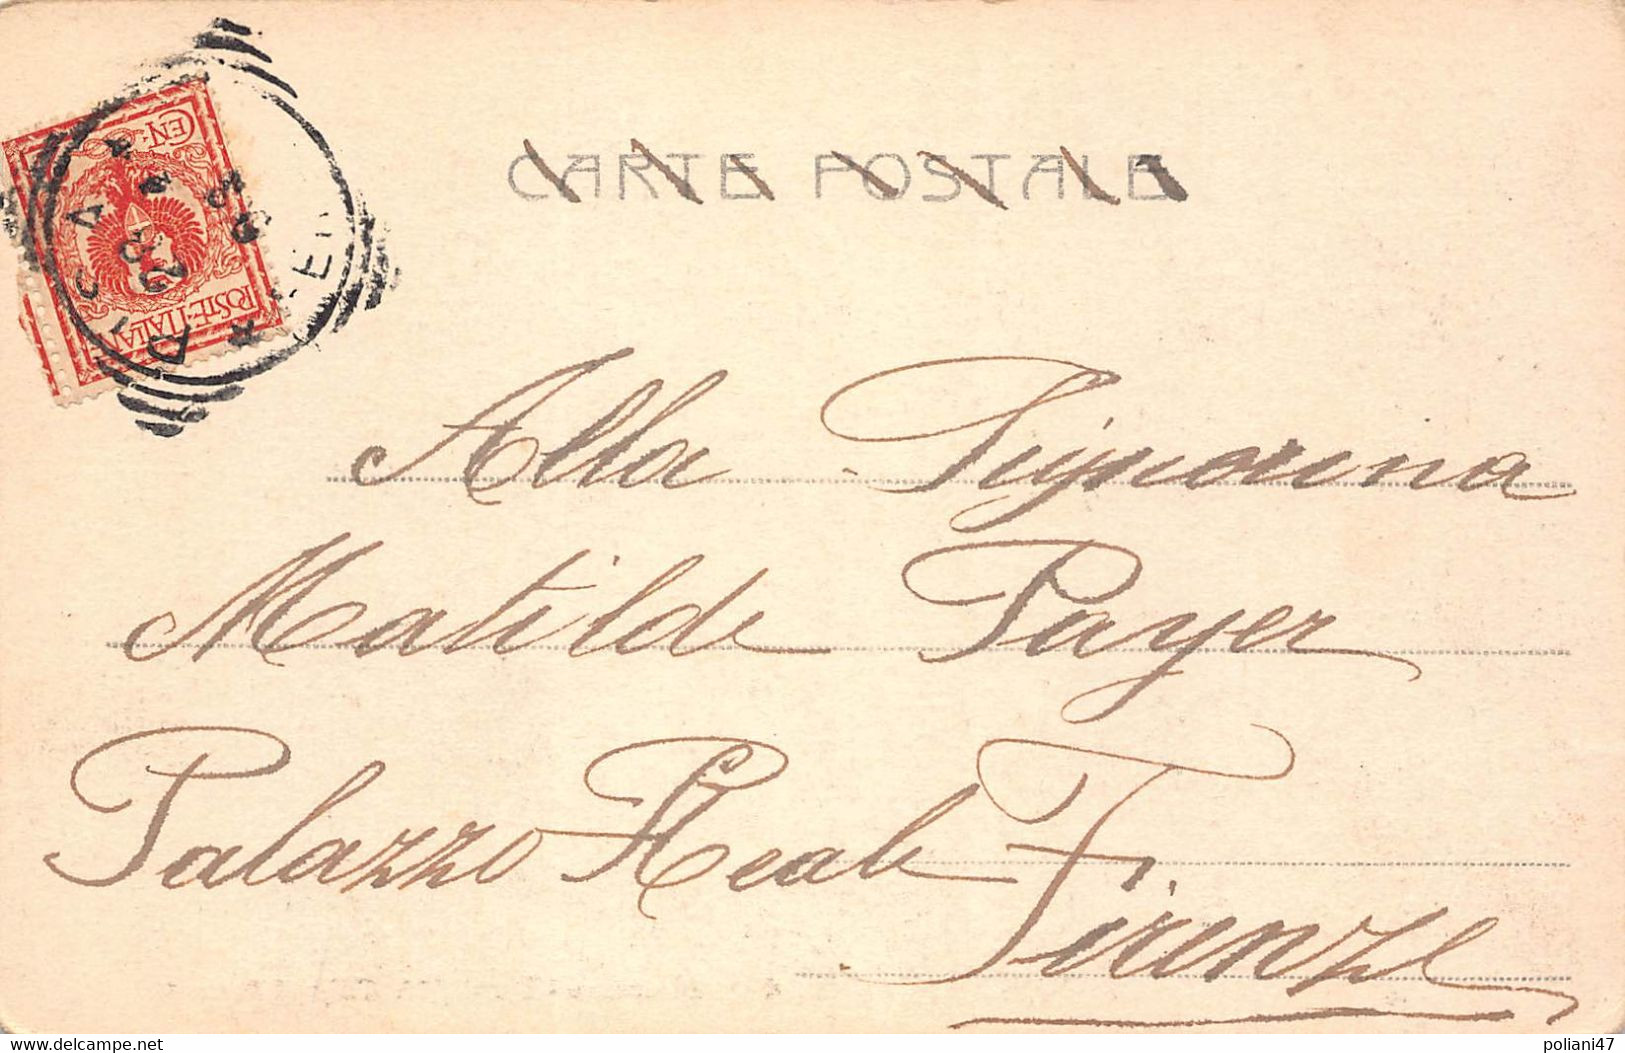 CARTE POSTALE
CEN. 2
POSTE·ITALIANE
Alla Signorina
Matilde Payer
Palazzo Reale
Firenze
delcampe.net
poliani47